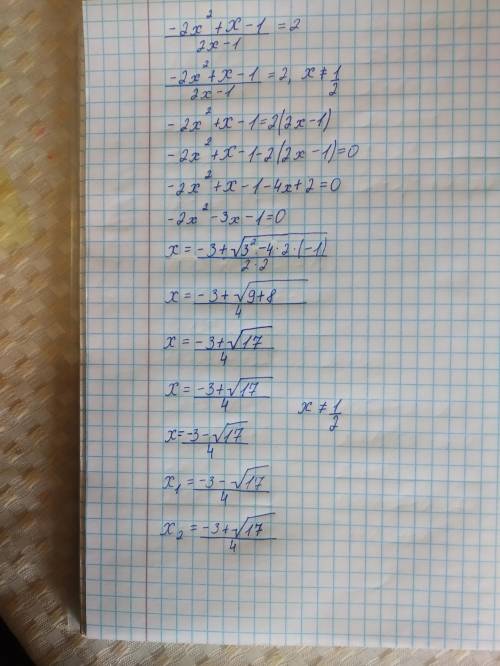 (-2x² + x - 1)/(2x - 1) = 2
(-2x² + x - 1)/(2x - 1) = 2, x ≠ 1/2
-2x² + x - 1 = 2(2x - 1)
-2x² + x - 1 - 2(2x - 1) = 0
-2x² + x - 1 - 4x + 2 = 0
-2x² - 3x - 1 = 0
x = (-3 + √(3² - 4 · 2 · (-1)))/(2 · 2)
x = (-3 + √(9 + 8))/4
x = (-3 + √17)/4
x = (-3 + √17)/4 x ≠ 1/2
x = (-3 - √17)/4
x₁ = (-3 - √17)/4
x₂ = (-3 + √17)/4